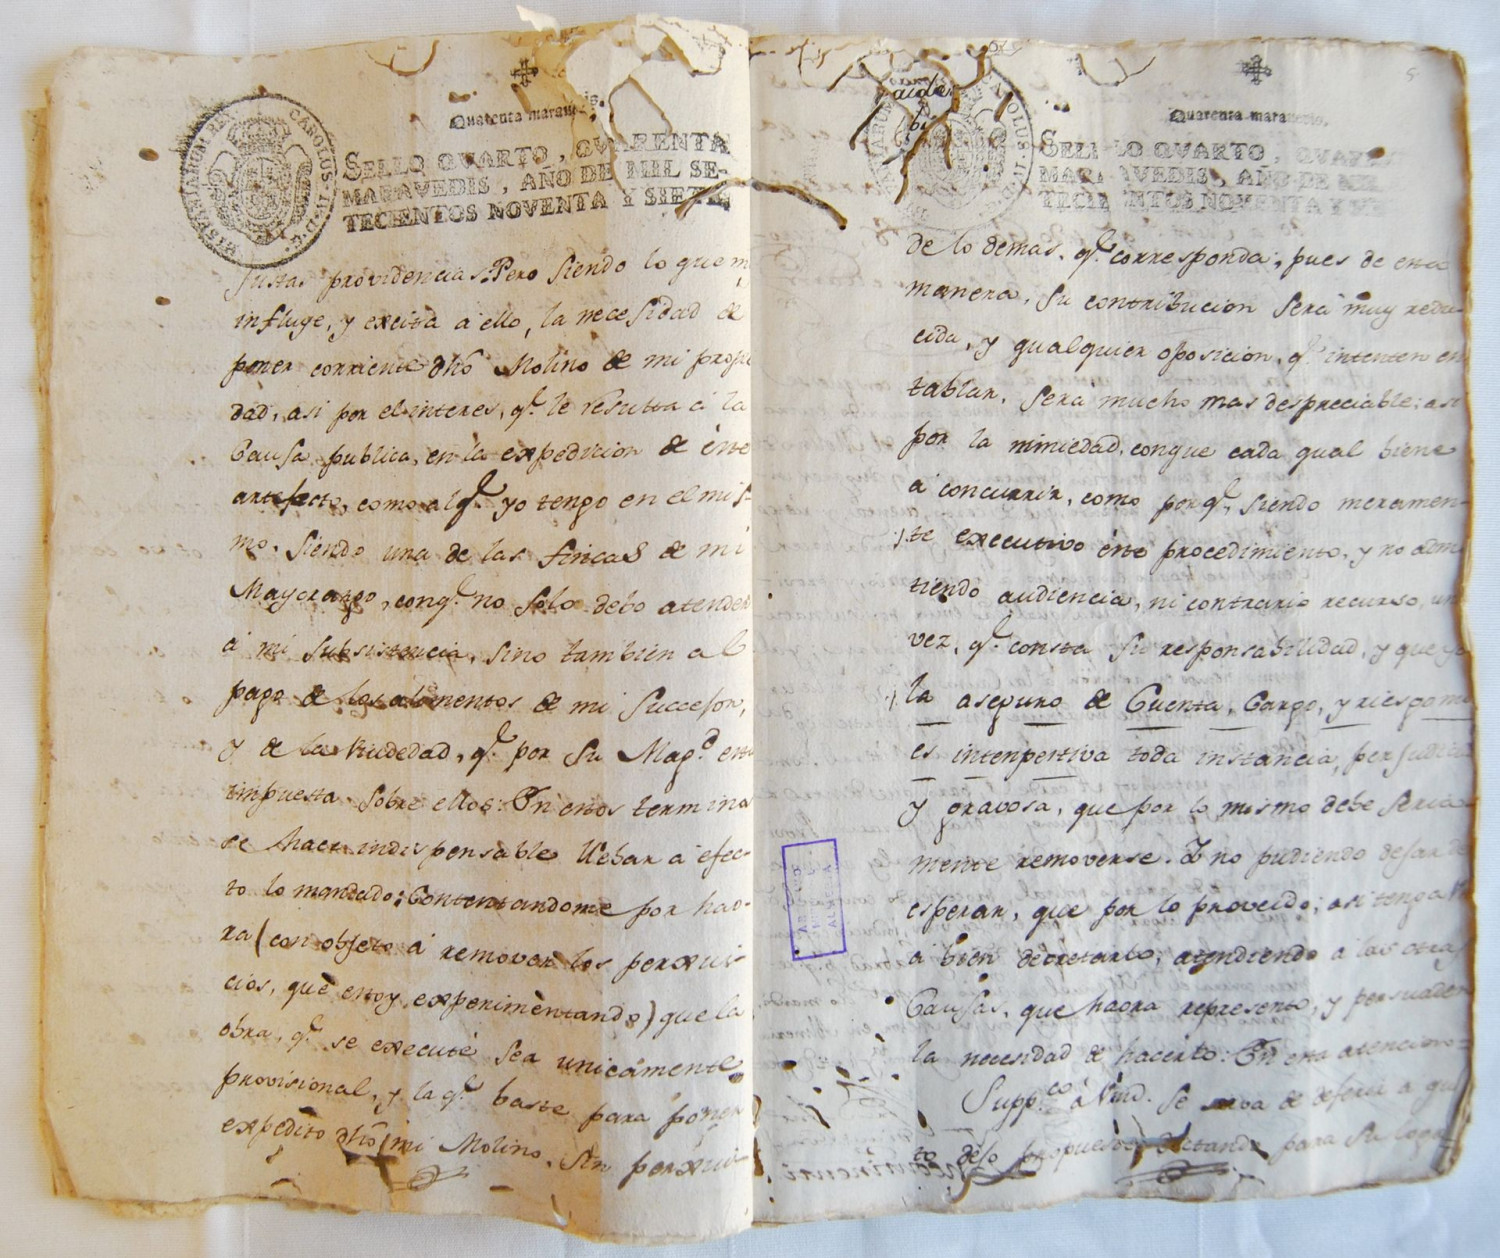 Quarenta maravedis.
SELLO QVARTO, QVARENTA
MARAVEDIS, AÑO DE MIL SE-
TECIENTOS NOVENTA Y SIETE
justas providencias: Pero siendo lo que
influye, y excita a ello, la necesidad de
poner corriente dhõ Molino de mi propie
dad, asi por el interes, qᵉ. le resulta à la
Causa publica, en la expedicion de éste
artefecto, como al qᵉ. yo tengo en el mis-
mo. siendo una de las fincas de mi
Mayorazgo, conqᵉ. no solo debo atender
à mi subsistencia, sino tambien al
pago de los alimentos de mi Succesor,
y de la Viudedad, qᵉ. por Su Magᵈ. està
impuesta sobre ellos: En estos termino
se hace indispensable llebar a efec-
to lo mandado: Contentandome por hao-
ra (con objeto á remover los perxui-
cios, què estoy experimentando) que la
obra, qᵉ. se execute sea unicamente
provisional, y la qᵉ. baste para poner
expedito dhõ mi Molino. Sin perxui-
Quarenta maravedis.
SELLO QVARTO, QVAREN
MARAVEDIS, AÑO DE MIL
TECIENTOS NOVENTA Y SIE
de lo demas, qᵉ. corresponda; pues de esta
manera, su contribucion serà muy redu-
cida, y qualquier oposicion, qᵉ. intenten en
tablar, sera mucho mas despreciable: asi
por la niniedad, conque cada qual biene
a concurrir, como porqᵉ. siendo meramen-
te executivo éste procedimiento, y no adm
tiendo audiencia, ni contrario recurso, un
vez, qᵉ. consta su responsabilidad, y que yo
la aseguro de Cuenta, Cargo, y riesgo mio
es intenpestiva toda instancia, perjudici
y gravosa, que por lo mismo debe seria
mente removerse. Y no pudiendo dejar de
esperar, que por lo proveido; asi tenga
à bien decretarlo, atendiendo a las otras
Causas, que haora represento, y persuaden
la necesidad de hacerlo: En esta atencion =
Suppᶜᵒ à Vmd. se sirva de deferir a qua
to dejo propuesto, dictando para su logr